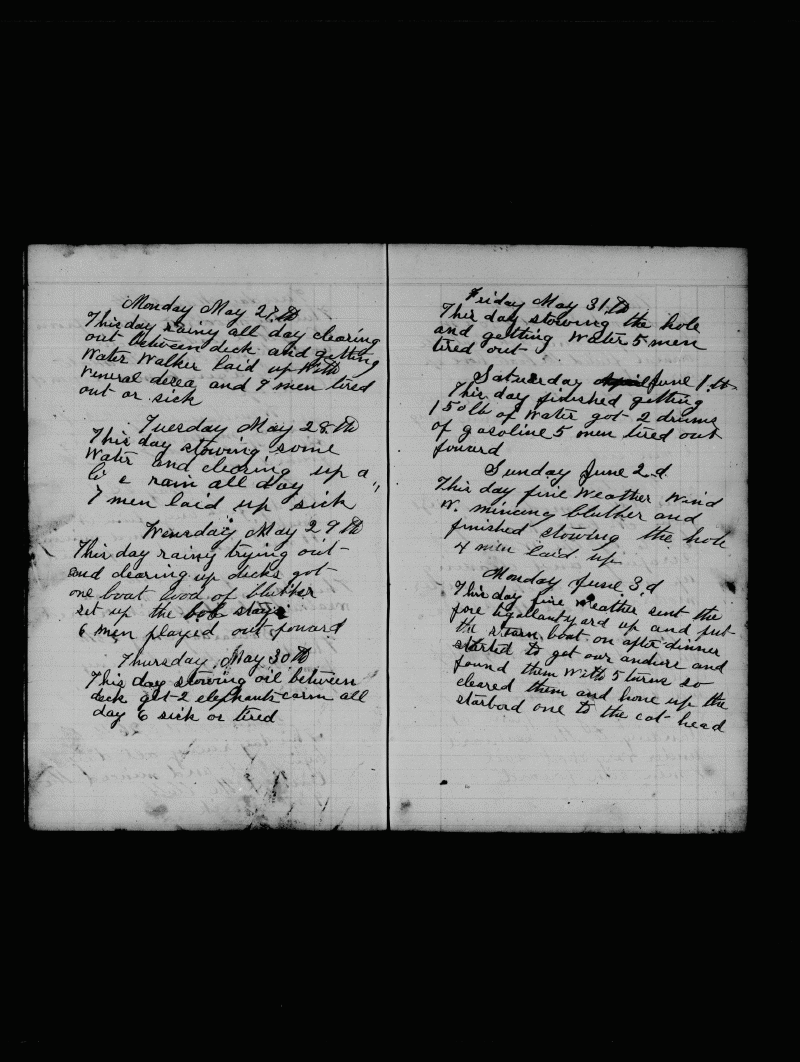 Monday May 27th
This day rainy all day clearing
out between deck and getting
Water Walker laid up With
veneral and 7 men tired
out or sick
Tuesday May 28th
This day stowing some
Water and clearing up a
rain all day
7 men laid up sick
Wensday May 29th
This day rainy trying out
and clearing up decks got
one boat of blubber
set up the bob stays
6 men played out foward
Thursday May 30th
This day stowing oil between
deck got 2 elephants carm all
day 6 sick or tired
Friday May 31.th
This day stowing the hole
and getting Water 5 men
tired out
Saturday April June 1.st
This day finished getting
150 of Water got 2 drums
of gasoline 5 men tired out
foward
Sunday June 2d.
This day fine Weather Wind
W. mincing blubber and
finished stowing the hole
4 men laid up
Monday June 3.d
This day fine Weather sent the
fore up and put
the starn boat on after dinner
started to get our and
found them With 5 turns so
cleared them and hove up the
starbord one to the cat head